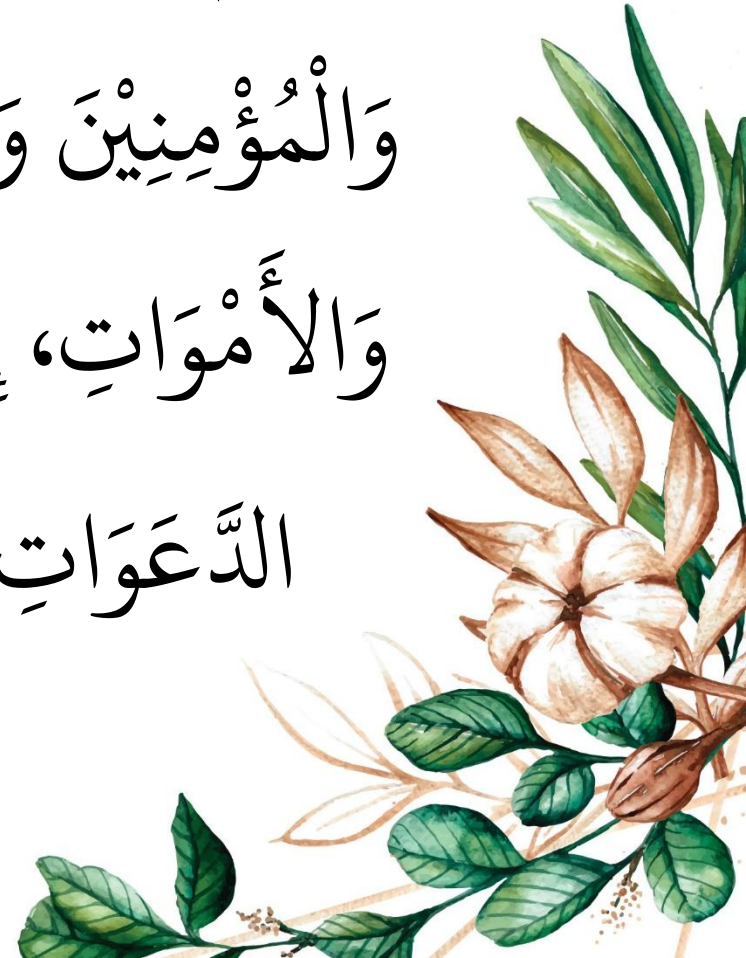 وَالْمُؤْمِنِيْنَ وَ
وَالأَمْوَاتِ، إِ
الدَّعَوَاتِ